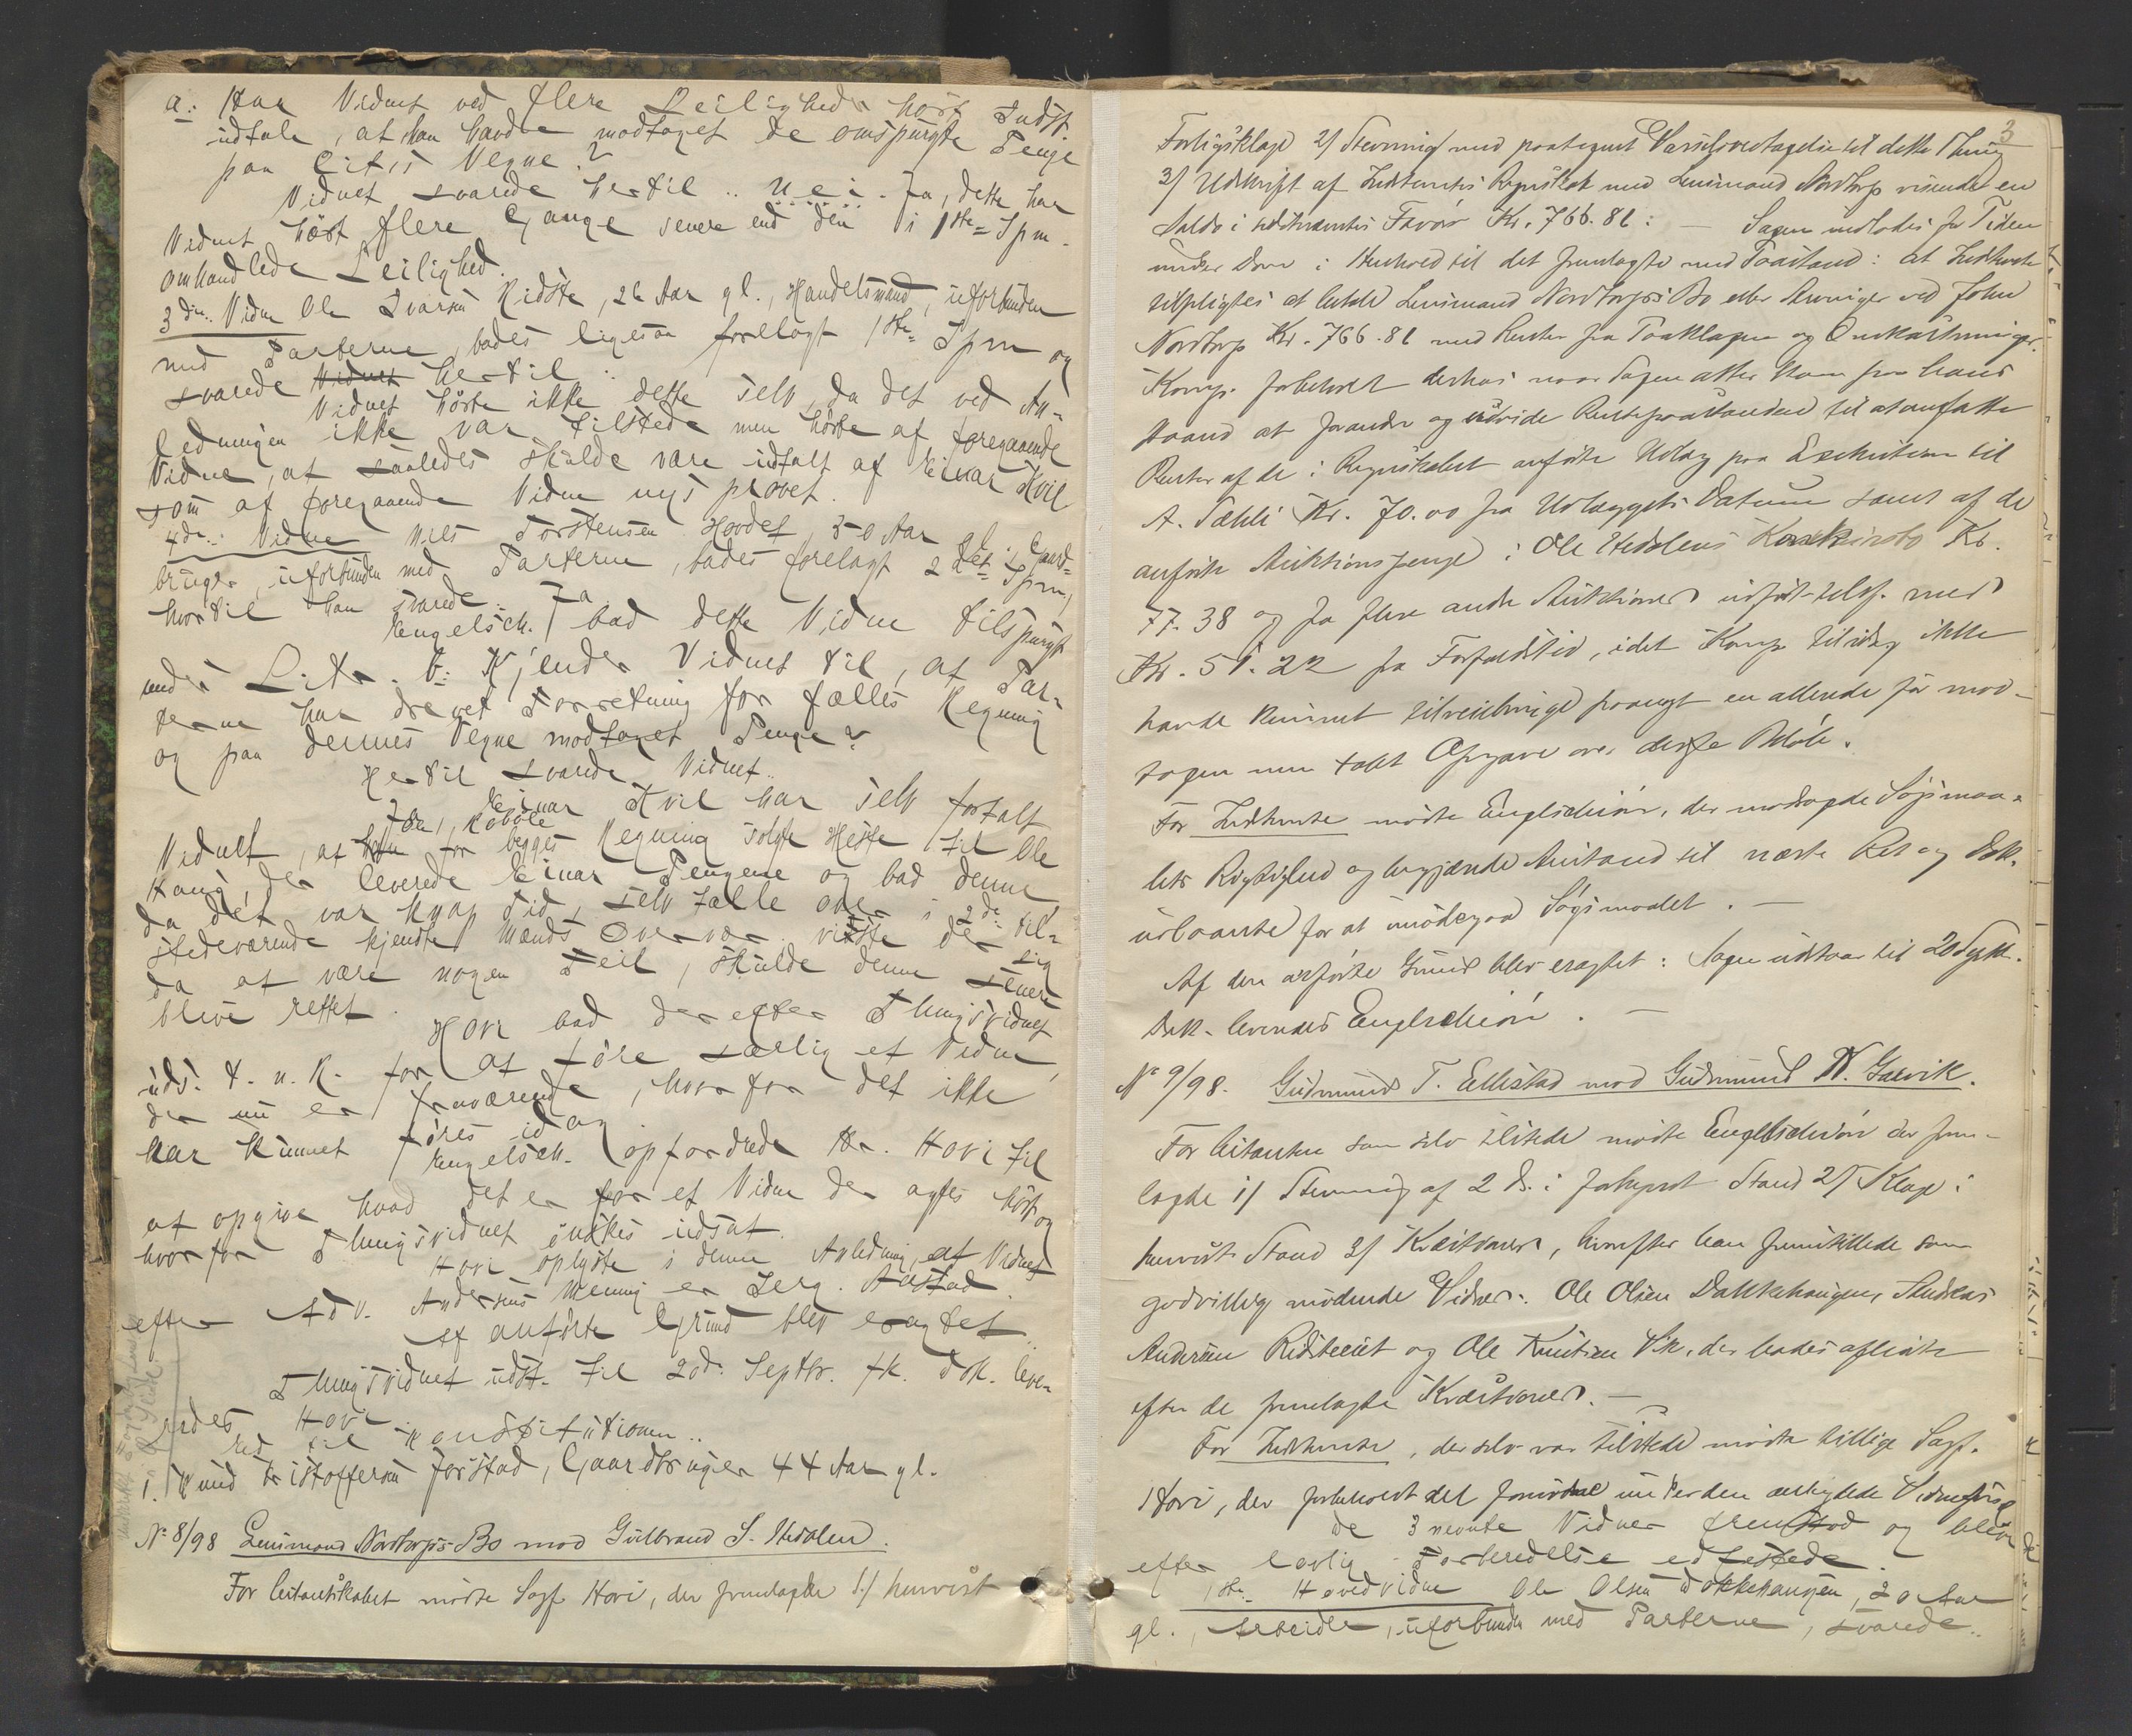 a: Har Vidnet ved flere Leiligheder hørt Indst.
udtale, at han havde modtaget de omspurgte Penge
paa Citis Vegne?
Vidnet svarede hertil: Nei. Ja, dette har
Vidnet hørt flere Gange senere end den i 1ste Spm.
omhandlede Leilighed.
3die Vidne Ole Ivarsen Ridste, 26 Aar gl., Handelsmand, uforbunden
med Parterne, bades ligesaa forelagt 1ste Spm og
svarede Vidnet hertil:
Vidnet hørte ikke dette selv, da det ved An-
ledningen ikke var tilstede men hørte af foregaaende
Vidne, at saaledes skulde være udtalt af Einar Kvil
som af foregaaende Vidne nys prøvet.
4de Vidne Nils Torstensen Hovdet, 50 Aar gl. Gaard-
bruger, uforbunden med Parterne, bades forelagt 2det Spm,
hvortil han svarede Ja.
Engelsch. bad dette Vidne tilspurgt
under Litr. b: Kjender Vidnet til, at Par-
terne har drevet Forretning for fælles Regning
og paa dennes Vegne modtaget Penge?
Hertil svarede Vidnet:
Ja, Einar Kvil har selv fortalt
Vidnet, at han for begges Regning solgte Heste til Ole
Haug, der leverede Einar Pengene og bad denne
da det var knap Tid, selv tælle over i 2de til-
stedeværende kjendte Mænds Overvær. Viste der sig
da at være nogen Feil, skulde denne senere
blive rettet.
Hovi bad derefter Thingsvidnet
uds. t. n. R. for at føre særlig et Vidne,
der nu er fraværende, hvorfor det ikke
har kunnet føres idag.
Engelsch. opfordrede Hr. Hovi til
at opgive hvad det er for et Vidne der agtes hørt og
hvorfor Thingsvidnet ønskes udsat.
Hovi oplyste i denne Anledning, at Vidnet
efter Adv. Andersens Mening er Serg. Aastad.
Af anførte Grund blev eragtet:
Thingsvidnet udst. til 20de Septbr. fk. Dok. leve-
redes Hovi.
Ed til Konstitutionen:
1. Knud Kristoffersen Jørstad, Gaardbruger 44 Aar gl.
No 8/98 Lensmand Nordtorps Bo mod Gulbrand S. Hedalen.
For Citantskabet mødte Sagf. Hovi, der fremlagde 1/ henvist
3
Forligsklage 2/ Stevning med paategnet Varselsvedtagelse til dette Thing
3/ Udskrift af Indstevntes Regnskab med Lensmand Nordtorp visende en
Saldo i sidstnævntes Favør Kr. 766.81: — Sagen indlodes for Tiden
under Dom i Henhold til det fremlagte med Paastand: at Indstevnte
tilpligtes at betale Lensmand Nordtorps Bo eller Arvinger ved John
Nordtorp Kr. 766.81 med Renter fra Paaklagen og Omkostninger.
Komp. forbeholdt derhos naar Sagen atter kom fra hans
Haand at forandre og udvide Rentepaastanden til at omfatte
Renter af de i Regnskabet anførte Udlæg paa Exekution til
A. Sæhli Kr. 70.00 fra Udlæggets Datum samt af de
anførte Auktionspenge i Ole Hedalens Konkursbo Kr.
77.38 og fra flere andre Auktioner udført tils. med
Kr. 51.22 fra Forfaldstid, idet Komp. til idag ikke
havde kunnet tilveiebringe paanyt en allerede før mod-
tagen men tabt Opgave over disse Beløb.
For Indstevnte mødte Englschiøn, der modsagde Søgsmaa-
lets Rigtighed og begjærede Anstand til næste Ret og Dok.
udlaante for at imødegaa Søgsmaalet. —
Af den anførte Grund blev eragtet: Sagen udstaar til 20 Septbr.
Dok. leveredes Englschiøn. —
No 9/98. Gudmund T. Ellestad mod Gudmund K. Garvik.
For Citanten som selv tilstede mødte Englschiøn der frem-
lagde 1/ Stevning af 2 ds. i forkyndt Stand 2/ Klage i
henvist Stand 3/ Kvæstioner, hvorefter han fremstillede som
godvillig mødende Vidner: Ole Olsen Dokkehaugen, Andreas
Andersen Ridsteeiet og Ole Knutsen Vik, der bades afhørte
efter de fremlagte Kvæstioner. —
For Indstevnte, der selv var tilstede mødte tillige Sagf.
Hovi, der forbeholdt det fornødne under den antydede Vidneførsel.
De 3 nevnte Vidner fremstod og bleve
efter lovlig Forberedelse edfestede.
1ste Hovedvidne Ole Olsen Dokkehaugen, 20 Aar
gl., Arbeider, uforbunden med Parterne, svarede: